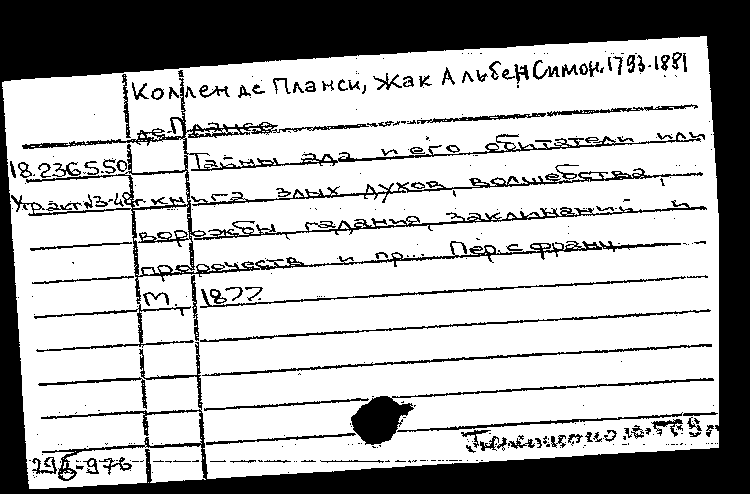 Коллен де Планси, Жак Альбен Симон. 1793-1881
де Планси
18.236.5.50 Тайны ада и его обитатели или
книга злых духов, волшебства,
ворожбы, гадания, заклинаний и
пророчеств и пр... Пер. с франц.
М., 1877